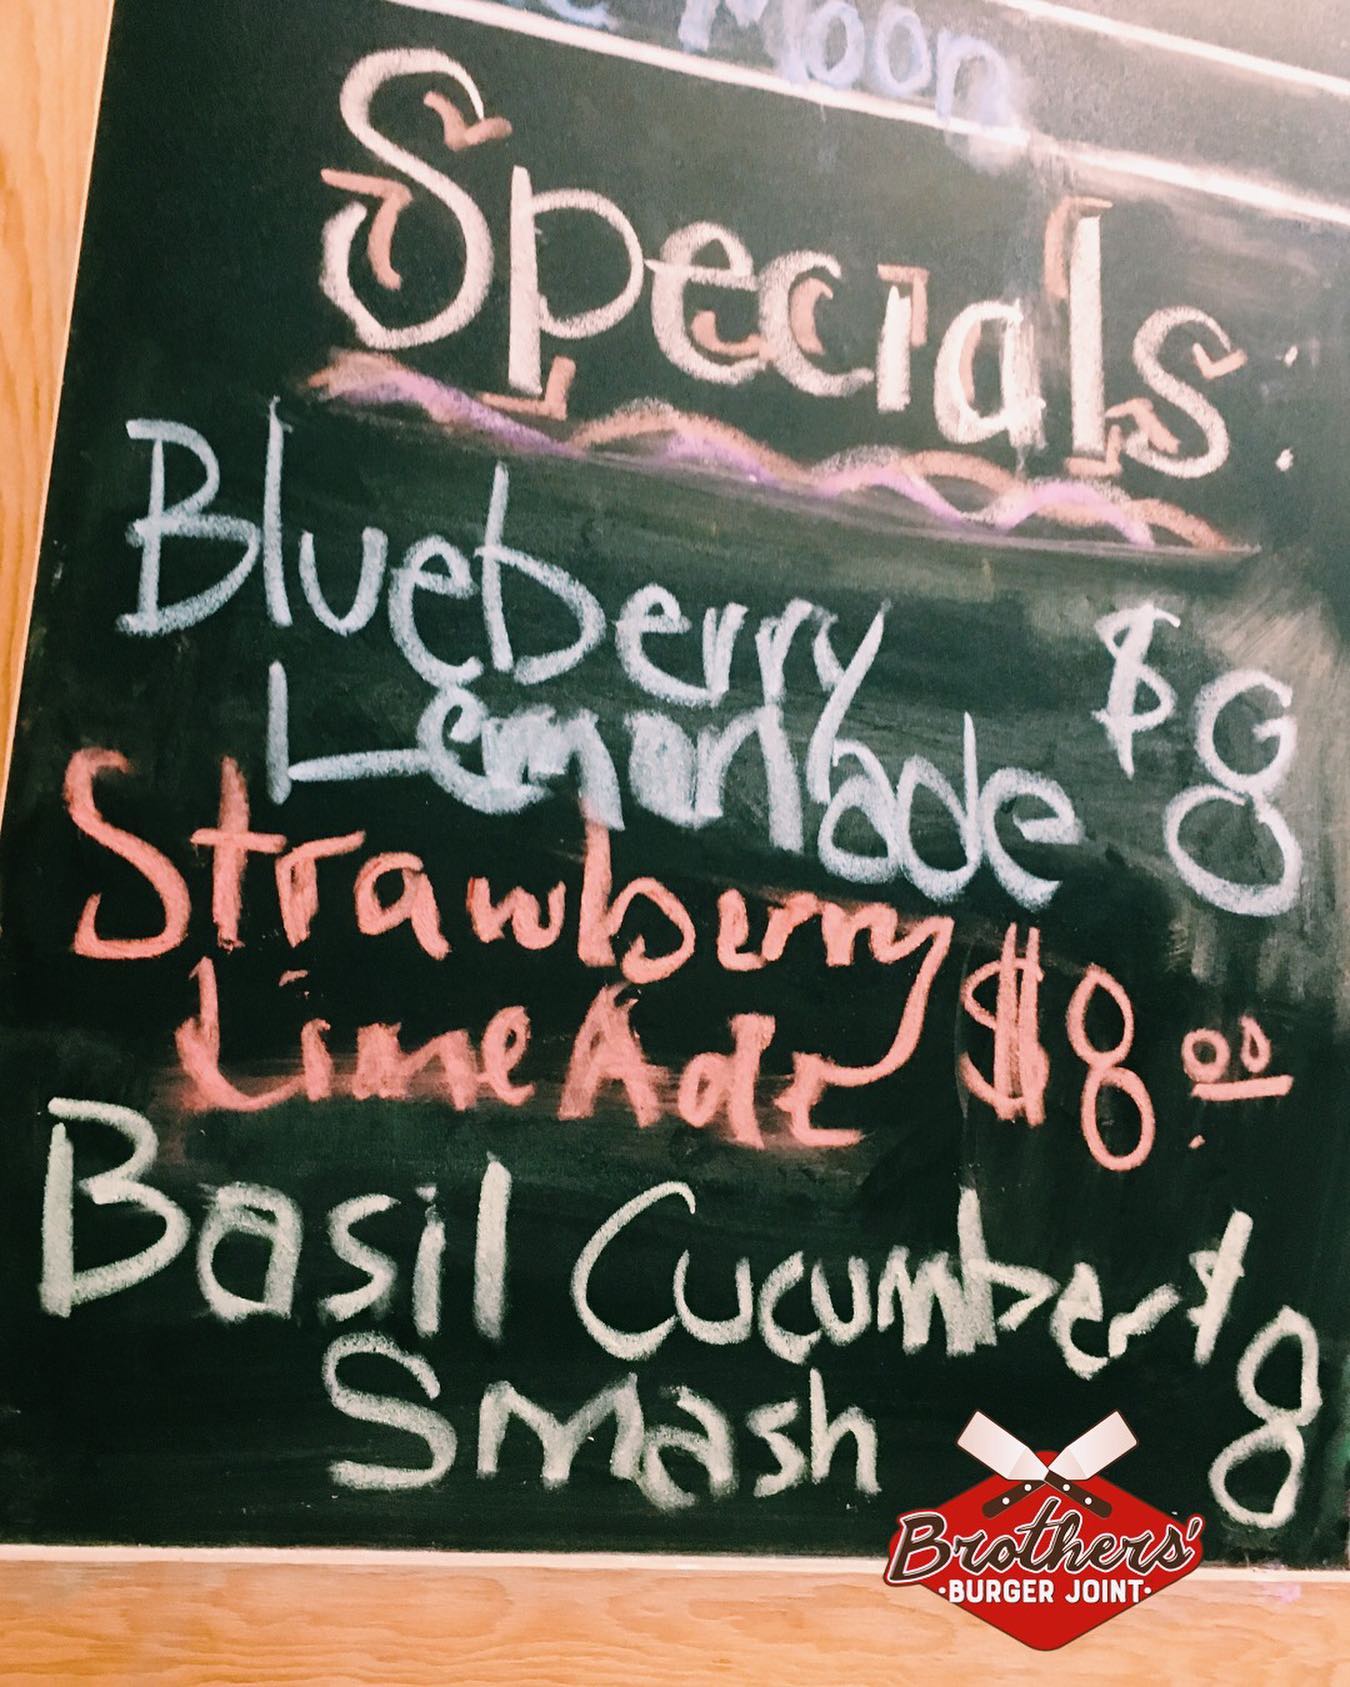 Moon
Specials:
Blueberry
Lemonade $8
Strawberry
LimeAde $8.00
Basil Cucumber $8
Smash
Brothers'
·BURGER JOINT·